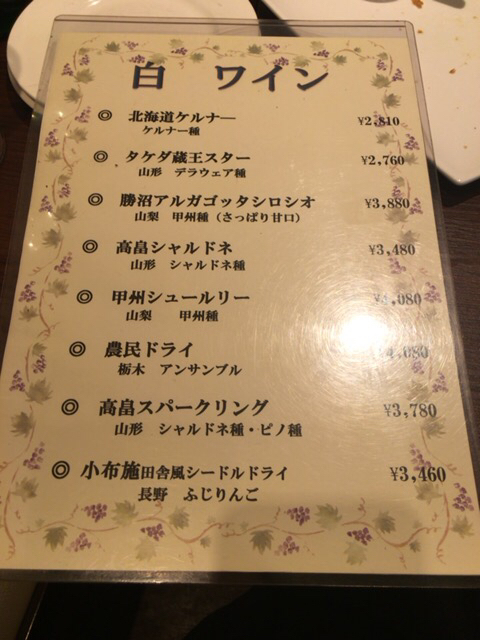 白 ワイン
◎ 北海道ケルナー ¥2,810
ケルナー種
◎ タケダ蔵王スター ¥2,760
山形 デラウェア種
◎ 勝沼アルガゴッタシロシオ ¥3,880
山梨 甲州種（さっぱり甘口）
◎ 高畠シャルドネ ¥3,480
山形 シャルドネ種
◎ 甲州シュールリー ¥4,080
山梨 甲州種
◎ 農民ドライ ¥4,080
栃木 アンサンブル
◎ 高畠スパークリング ¥3,780
山形 シャルドネ種・ピノ種
◎ 小布施田舎風シードルドライ ¥3,460
長野 ふじりんご